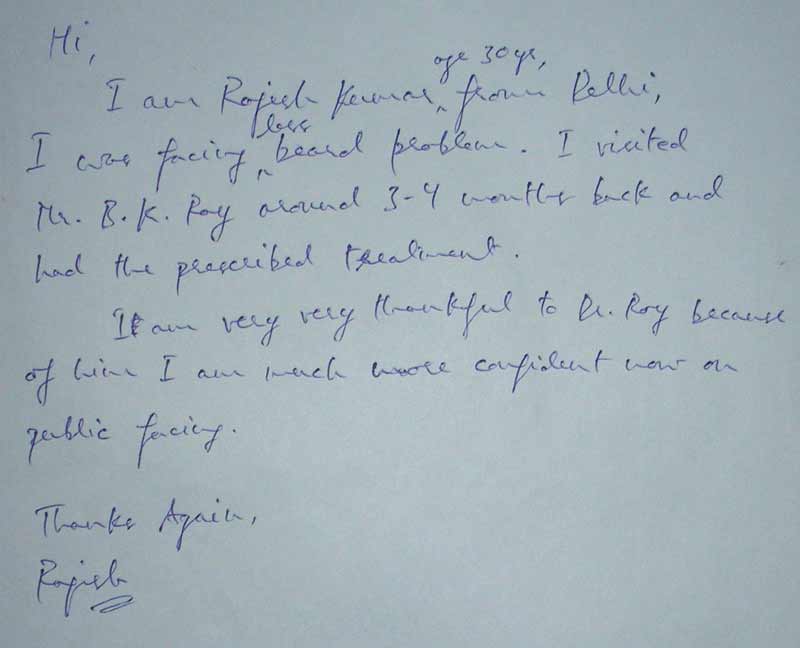 Hi,
I am Rajesh Kumar, age 30 yrs, from Delhi,
I was facing less beard problem. I visited
Mr. B. K. Roy around 3-4 months back and
had the prescribed treatment.
I am very very thankful to Dr. Roy because
of him I am much more confident now on
public facing.
Thanks Again,
Rajesh